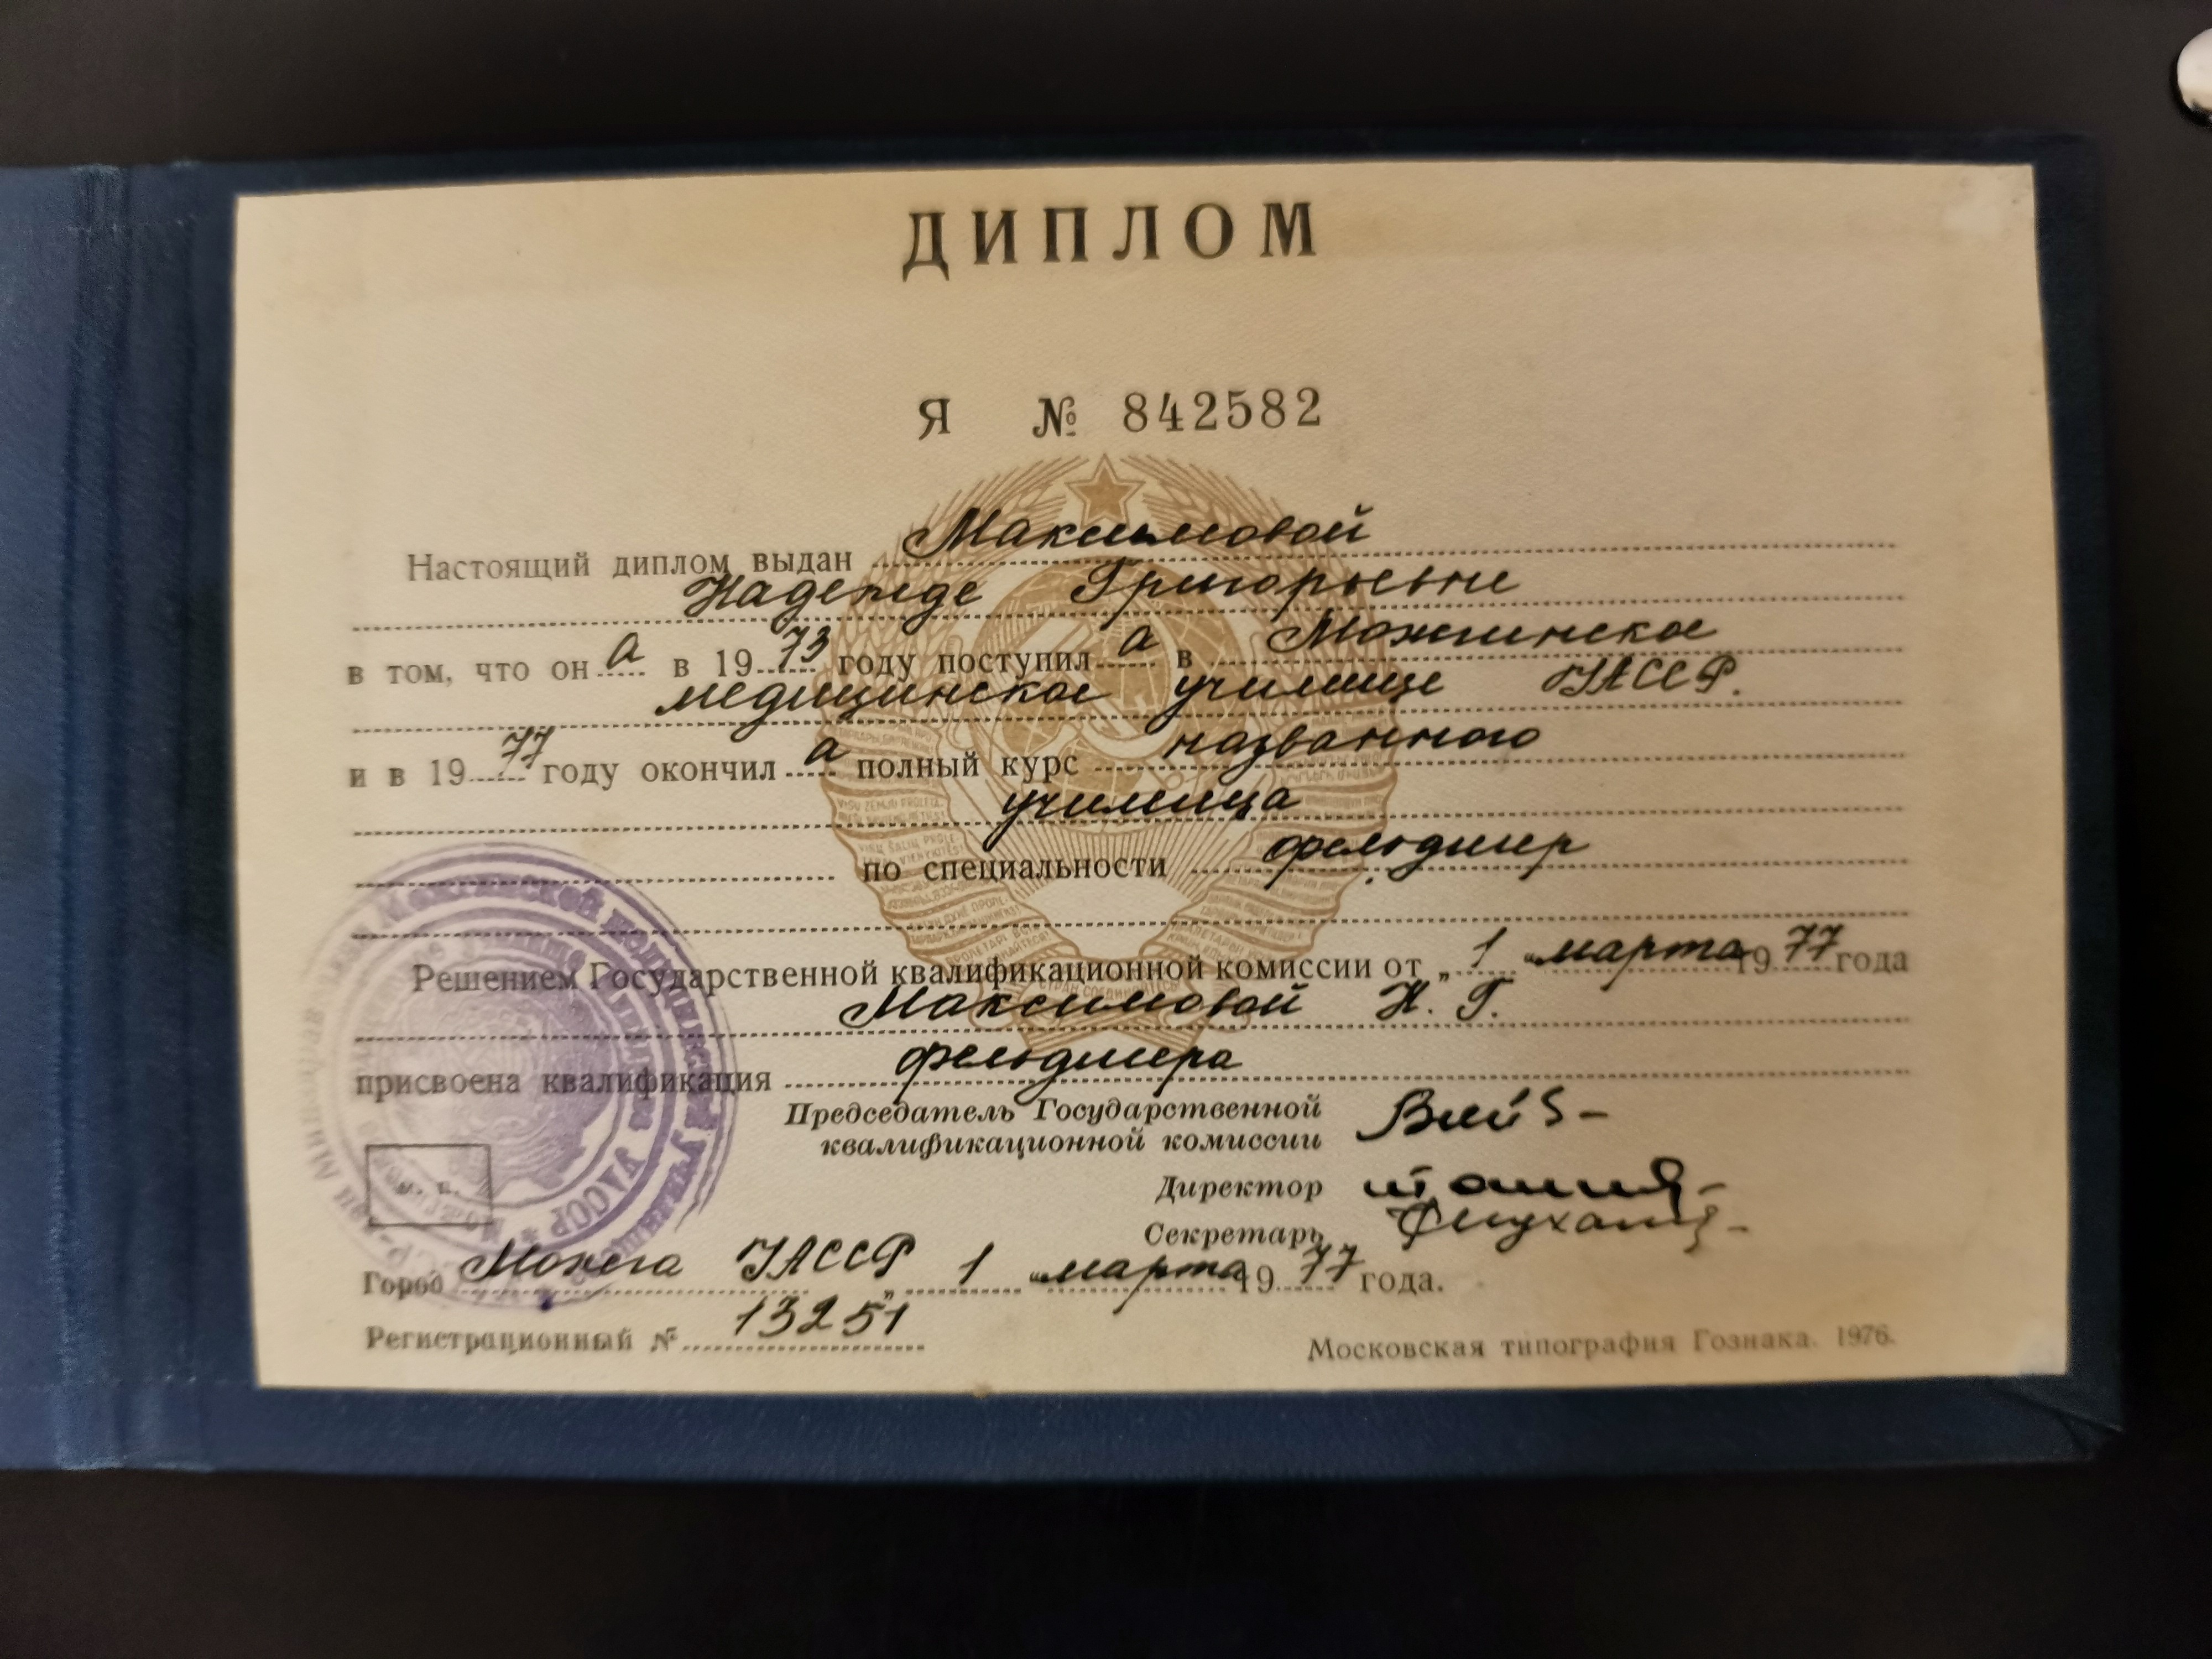 ДИПЛОМ
Я № 842582
Настоящий диплом выдан Максимовой
Надежде Григорьевне
в том, что он а в 1973 году поступил а в Можгинское
медицинское училище УАССР.
и в 1977 году окончил а полный курс названного
училища
по специальности фельдшер
Решением Государственной квалификационной комиссии от „1“ марта 1977 года
Максимовой Н. Г.
присвоена квалификация фельдшера
Председатель Государственной
квалификационной комиссии
Директор
Секретарь
М. П.
Город Можга УАССР „1“ марта 1977 года.
Регистрационный № 13251
Московская типография Гознака. 1976.